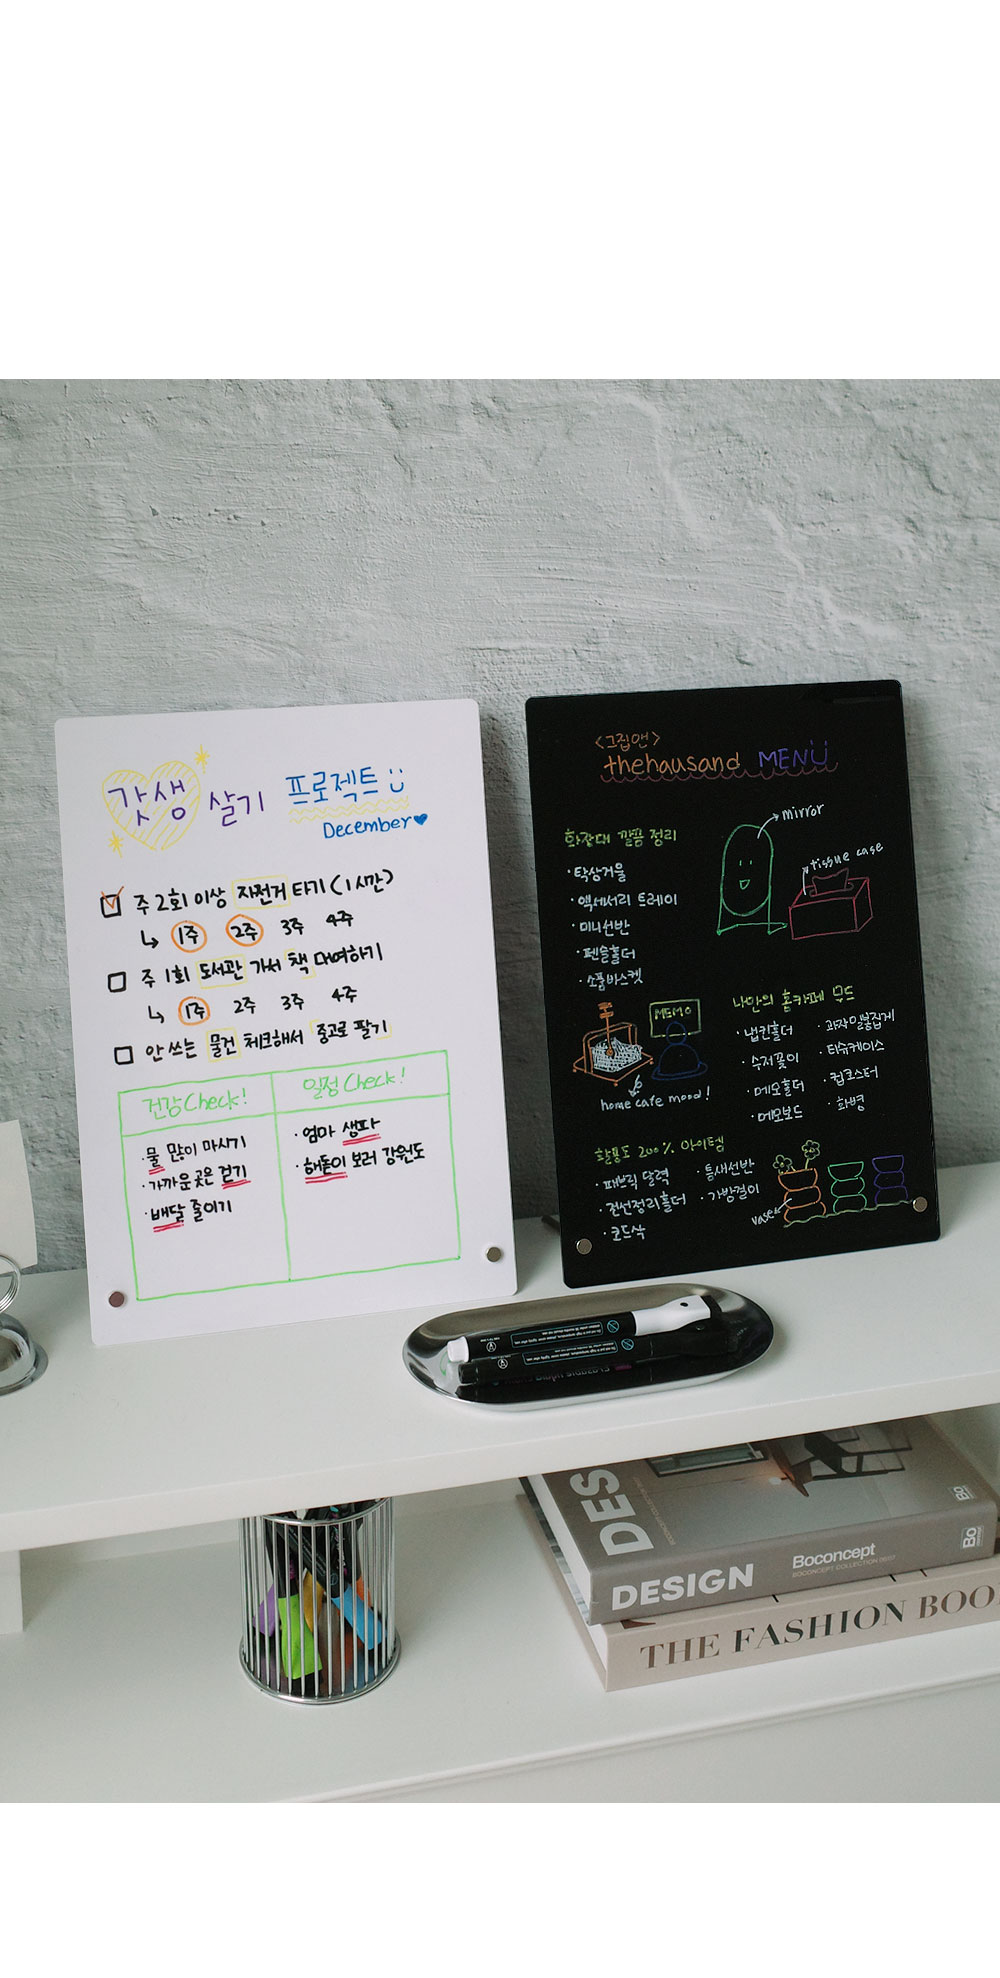 갓생 살기 프로젝트
December
주 2회 이상 자전거 타기 (1시간)
↳ 1주 2주 3주 4주
주 1회 도서관 가서 책 대여하기
↳ 1주 2주 3주 4주
안 쓰는 물건 체크해서 중고로 팔기
건강 Check!
· 물 많이 마시기
· 가까운 곳은 걷기
· 배달 줄이기
일정 Check!
· 엄마 생파
· 해돋이 보러 강원도
<그집앤>
thehausand MENU
화장대 깔끔 정리
· 탁상거울
· 액세서리 트레이
· 미니선반
· 펜슬홀더
· 소품바스켓
mirror
tissue case
MEMO
home cafe mood!
나만의 홈카페 무드
· 냅킨홀더
· 수저꽂이
· 메모홀더
· 메모보드
· 과자밀봉집게
· 티슈케이스
· 컵코스터
· 화병
활용도 200% 아이템
· 패브릭 달력
· 전선정리홀더
· 코드삭
· 틈새선반
· 가방걸이
vase
DES
DESIGN
Boconcept
BOCONCEPT COLLECTION
Bo
Bo
THE FASHION BOO